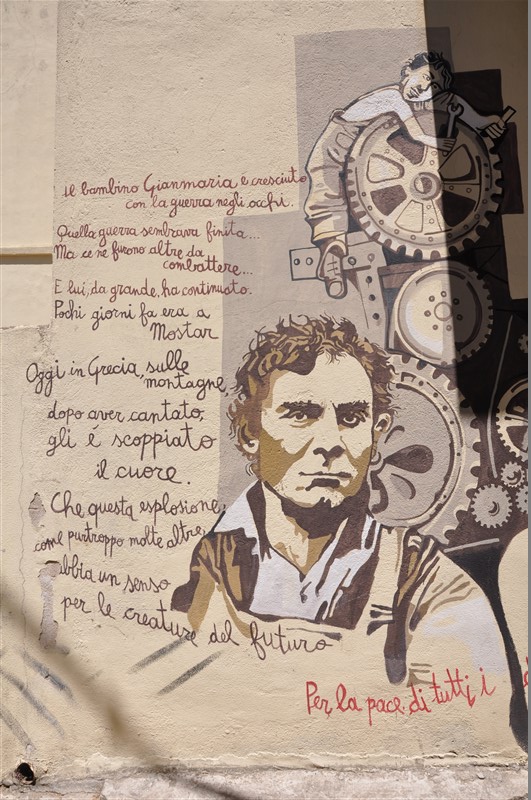 il bambino Gianmaria è cresciuto
con la guerra negli occhi.
Quella guerra sembrava finita...
Ma ce ne furono altre da
combattere...
E lui, da grande, ha continuato.
Pochi giorni fa era a
Mostar
Oggi in Grecia, sulle
montagne,
dopo aver cantato,
gli é scoppiato
il cuore.
Che questa esplosione,
come purtroppo molte altre,
abbia un senso
per le creature del futuro
Per la pace di tutti i